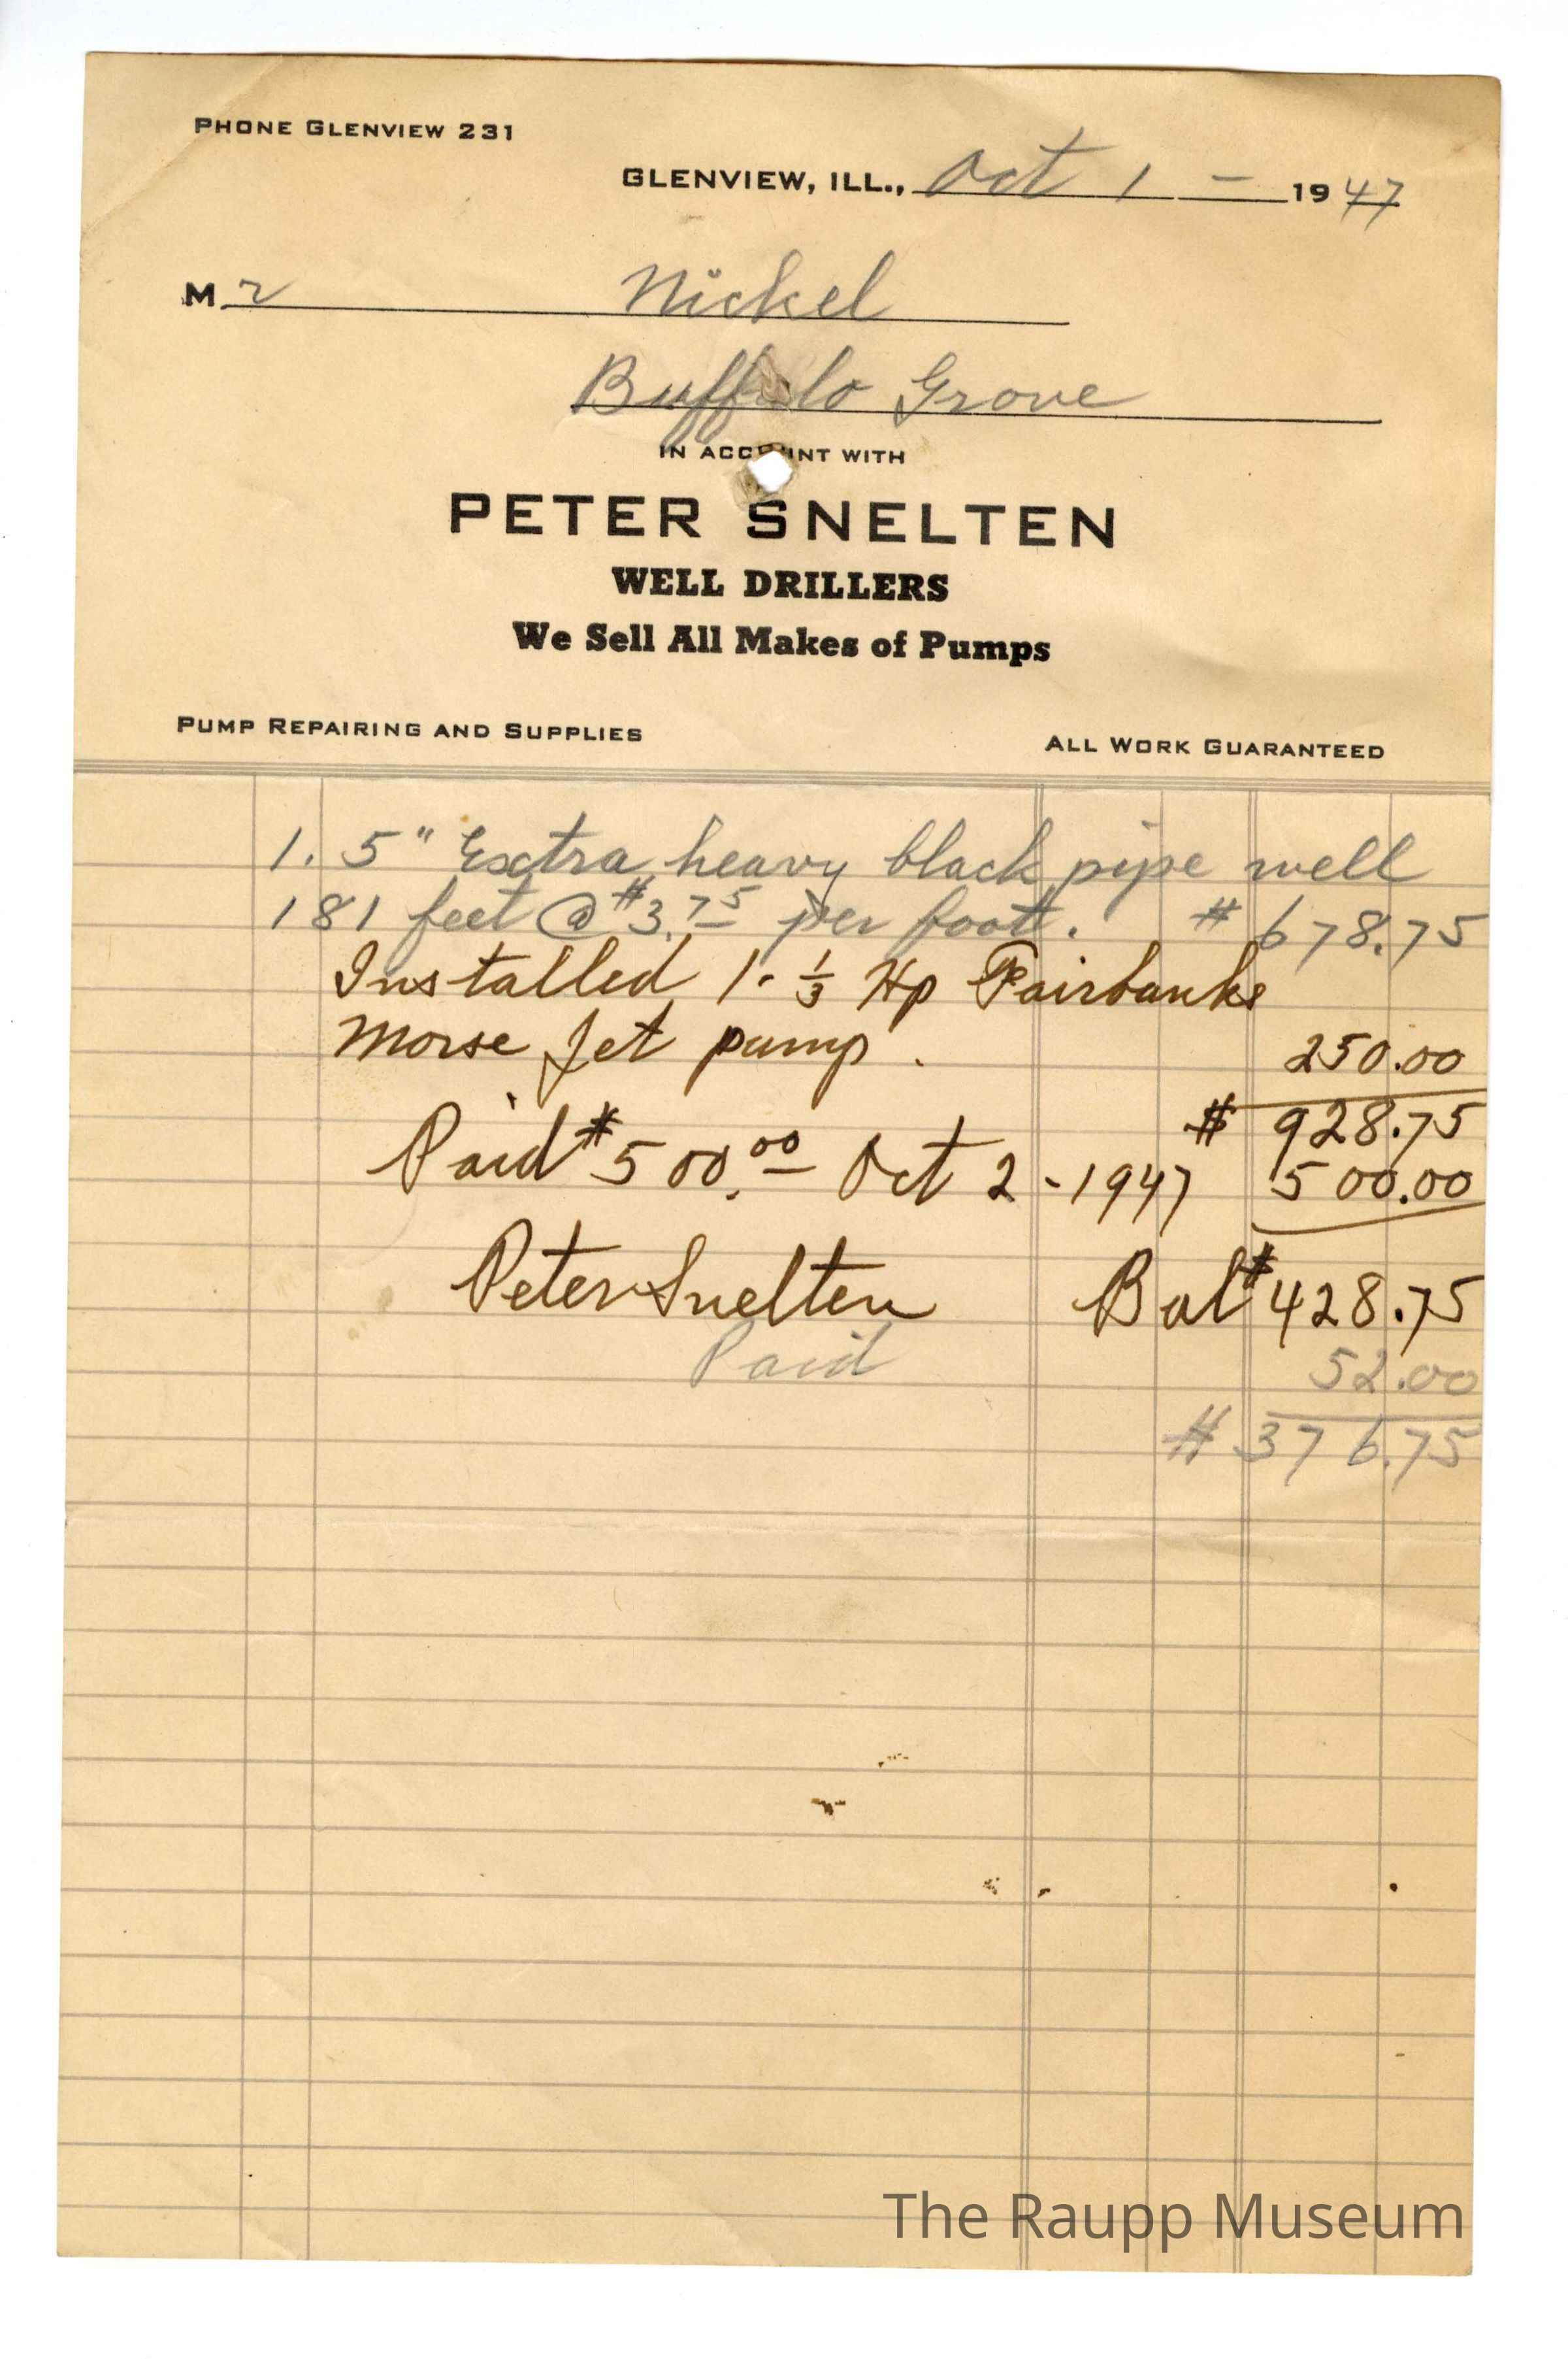 PHONE GLENVIEW 231
GLENVIEW, ILL., Oct 1 - 1947
Mr Nickel
Buffalo Grove
IN ACCOUNT WITH
PETER SNELTEN
WELL DRILLERS
We Sell All Makes of Pumps
PUMP REPAIRING AND SUPPLIES ALL WORK GUARANTEED
1. 5" Extra heavy black pipe well
181 feet @ $3.75 per foot. $678.75
Installed 1- 1/3 Hp Fairbanks
Morse Jet pump. 250.00
$ 928.75
Paid $500.00 Oct 2-1947 500.00
Peter Snelten Bal $428.75
Paid 52.00
$376.75
The Raupp Museum